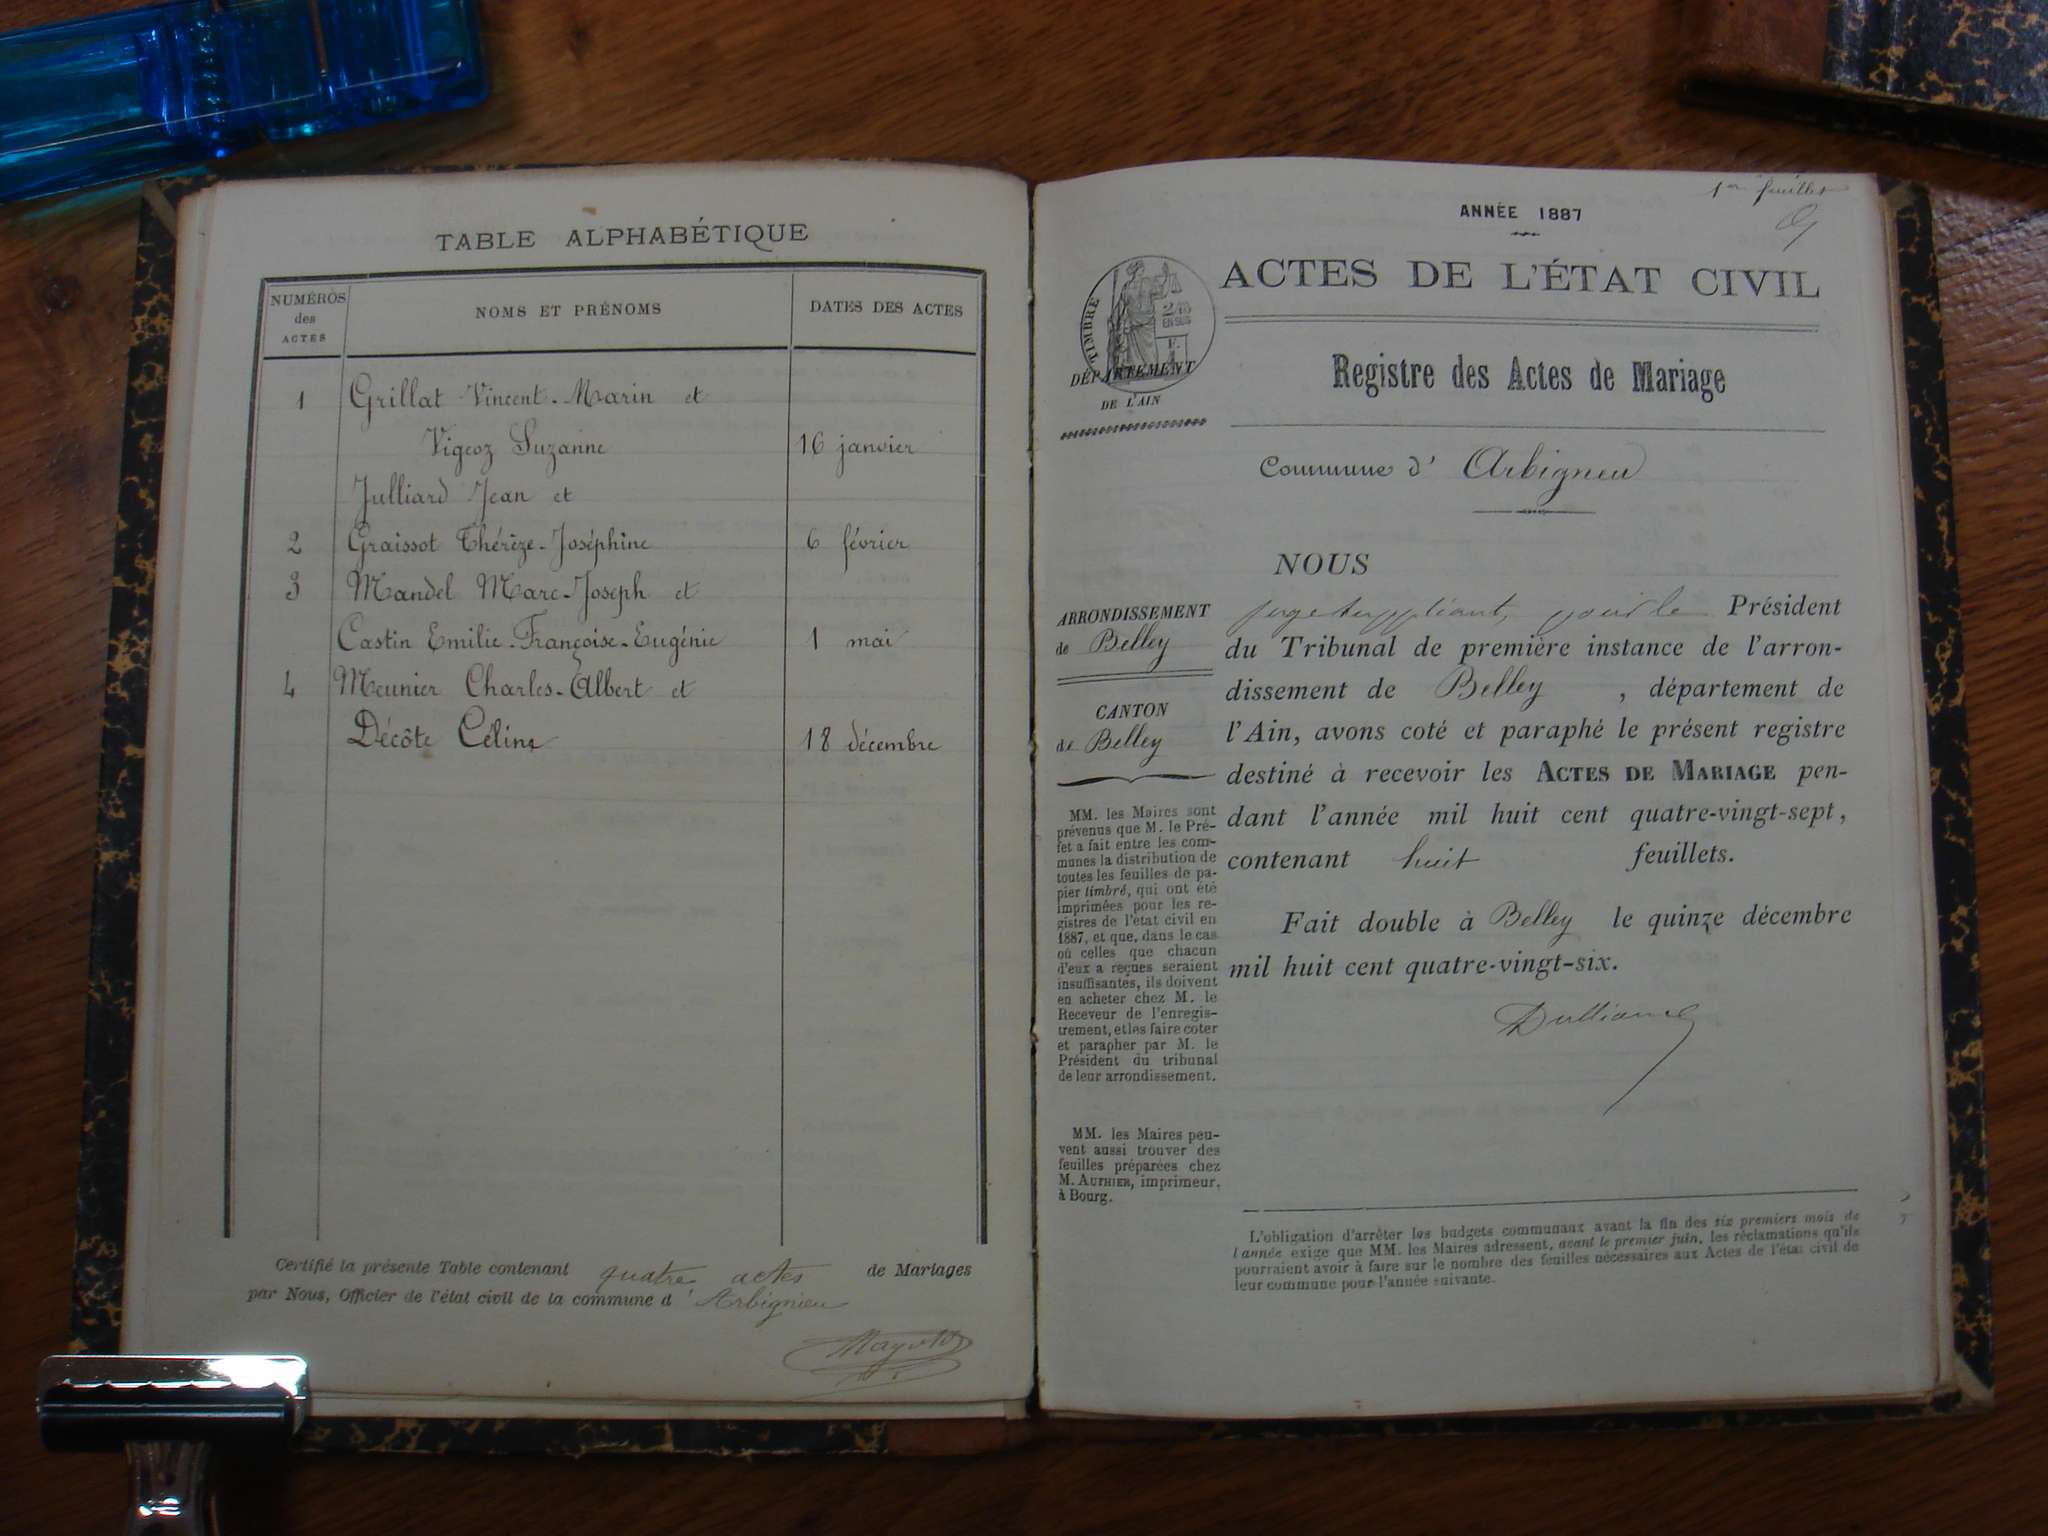 TABLE ALPHABÉTIQUE
NUMÉROS
des
ACTES
NOMS ET PRÉNOMS
DATES DES ACTES
1 Grillat Vincent-Marin et
Vigeoz Suzanne 16 janvier
Julliard Jean et
2 Graissot Thérèze-Joséphine 6 février
3 Mandel Marc-Joseph et
Castin Emilie-Françoise-Eugénie 1 mai
4 Meunier Charles-Albert et
Décôte Céline 18 décembre
Certifié la présente Table contenant quatre actes de Mariages
par Nous, Officier de l'état civil de la commune d' Arbignieu
1er feuillet
ANNÉE 1887
ACTES DE L'ÉTAT CIVIL
TIMBRE
2/10
EN SUS
DÉPARTEMENT
DE L'AIN
Registre des Actes de Mariage
Commune d' Arbignieu
ARRONDISSEMENT
de Belley
CANTON
de Belley
MM. les Maires sont
prévenus que M. le Pré-
fet a fait entre les com-
munes la distribution de
toutes les feuilles de pa-
pier timbré, qui ont été
imprimées pour les re-
gistres de l'état civil en
1887, et que, dans le cas
où celles que chacun
d'eux a reçues seraient
insuffisantes, ils doivent
en acheter chez M. le
Receveur de l'enregis-
trement, et les faire coter
et parapher par M. le
Président du tribunal
de leur arrondissement.
MM. les Maires peu-
vent aussi trouver des
feuilles préparées chez
M. AUTHIER, imprimeur,
à Bourg.
NOUS
juge suppléant, pour le Président
du Tribunal de première instance de l'arron-
dissement de Belley, département de
l'Ain, avons coté et paraphé le présent registre
destiné à recevoir les ACTES DE MARIAGE pen-
dant l'année mil huit cent quatre-vingt-sept,
contenant huit feuillets.
Fait double à Belley le quinze décembre
mil huit cent quatre-vingt-six.
L'obligation d'arrêter les budgets communaux avant la fin des six premiers mois de
l'année exige que MM. les Maires adressent, avant le premier juin, les réclamations qu'ils
pourraient avoir à faire sur le nombre des feuilles nécessaires aux Actes de l'état civil de
leur commune pour l'année suivante.